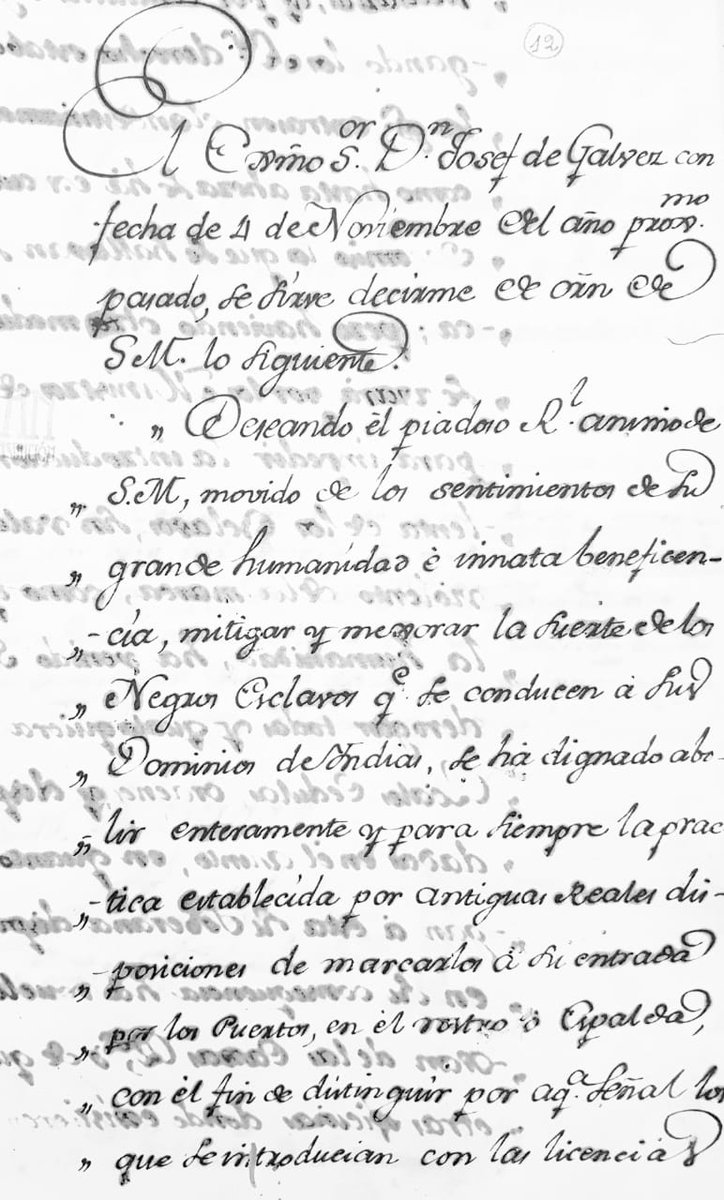 12
El Exmõ S.or D.n Josef de Galvez con
fecha de 4 de Noviembre del año prox.mo
pasado, se sirve decirme de orñ de
S.M. lo siguiente.
„ Deseando èl piadoso R.l animo de
„ S.M, movido de los sentimientos de su
„ grande humanidad è innata beneficen-
„ -cia, mitigar y mejorar la suerte de los
„ Negros Esclavos q.e se conducen à sus
„ Dominios de Yndias, se hà dignado abo-
„ lir enteramente y para siempre la prac
„ -tica establecida por antiguas Reales dis-
„ -posiciones de marcarlos à su entrada
„ por los Puertos, en èl rostro ò Espalda,
„ con èl fin de distinguir por aq.a señal los
„ que se introducian con las licencias